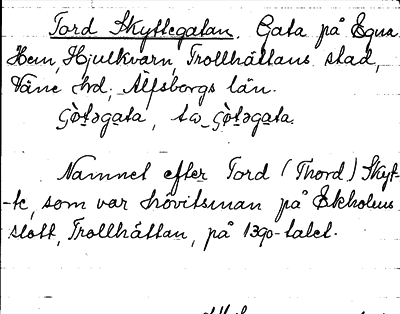 Tord Skyttegatan. Gata på Egna
Hem, Hjulkvarn, Trollhättans stad,
Väne hrd, Älfsborgs län.
Namnet efter Tord (Thord) Skyt-
-te, som var hövitsman på Ekholms
slott, Trollhättan, på 1390-talet.